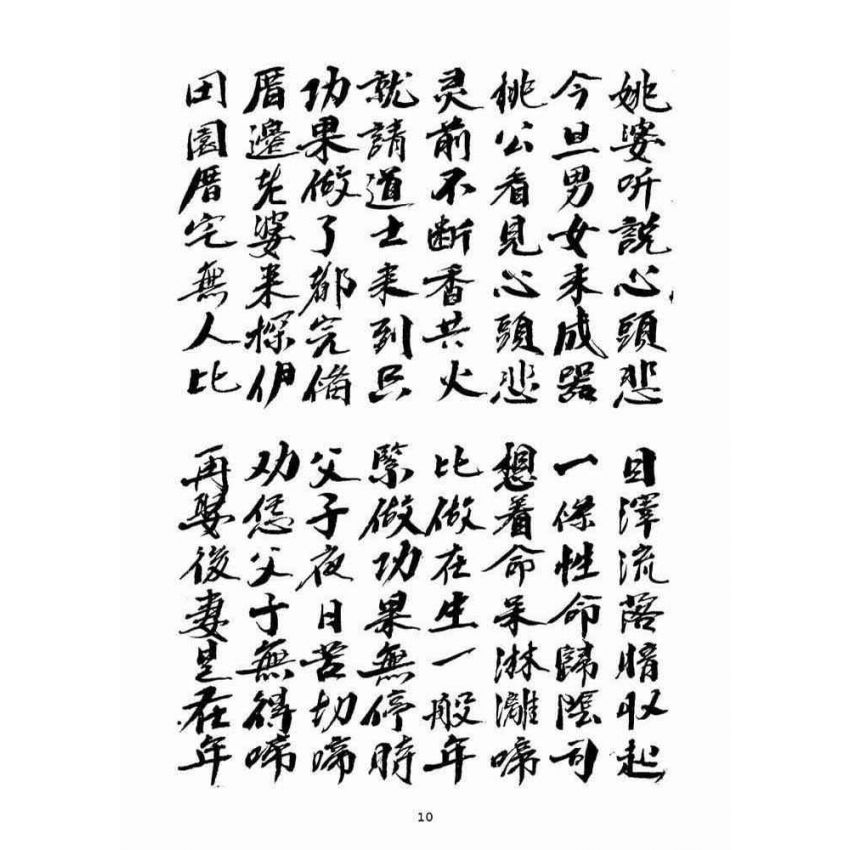 姚婆听説心頭悲 目澤流落暗収起
今旦男女未成器 一條性命歸陰司
桃公看見心頭悲 想着命呆淋漓啼
灵前不断香共火 比做在生一般年
就請道士来到只 緊做功果無停時
功果做了都完俻 父子夜日苦切啼
厝邊老婆来探伊 劝恁父子無得啼
田園厝宅無人比 再娶後妻是在年
10